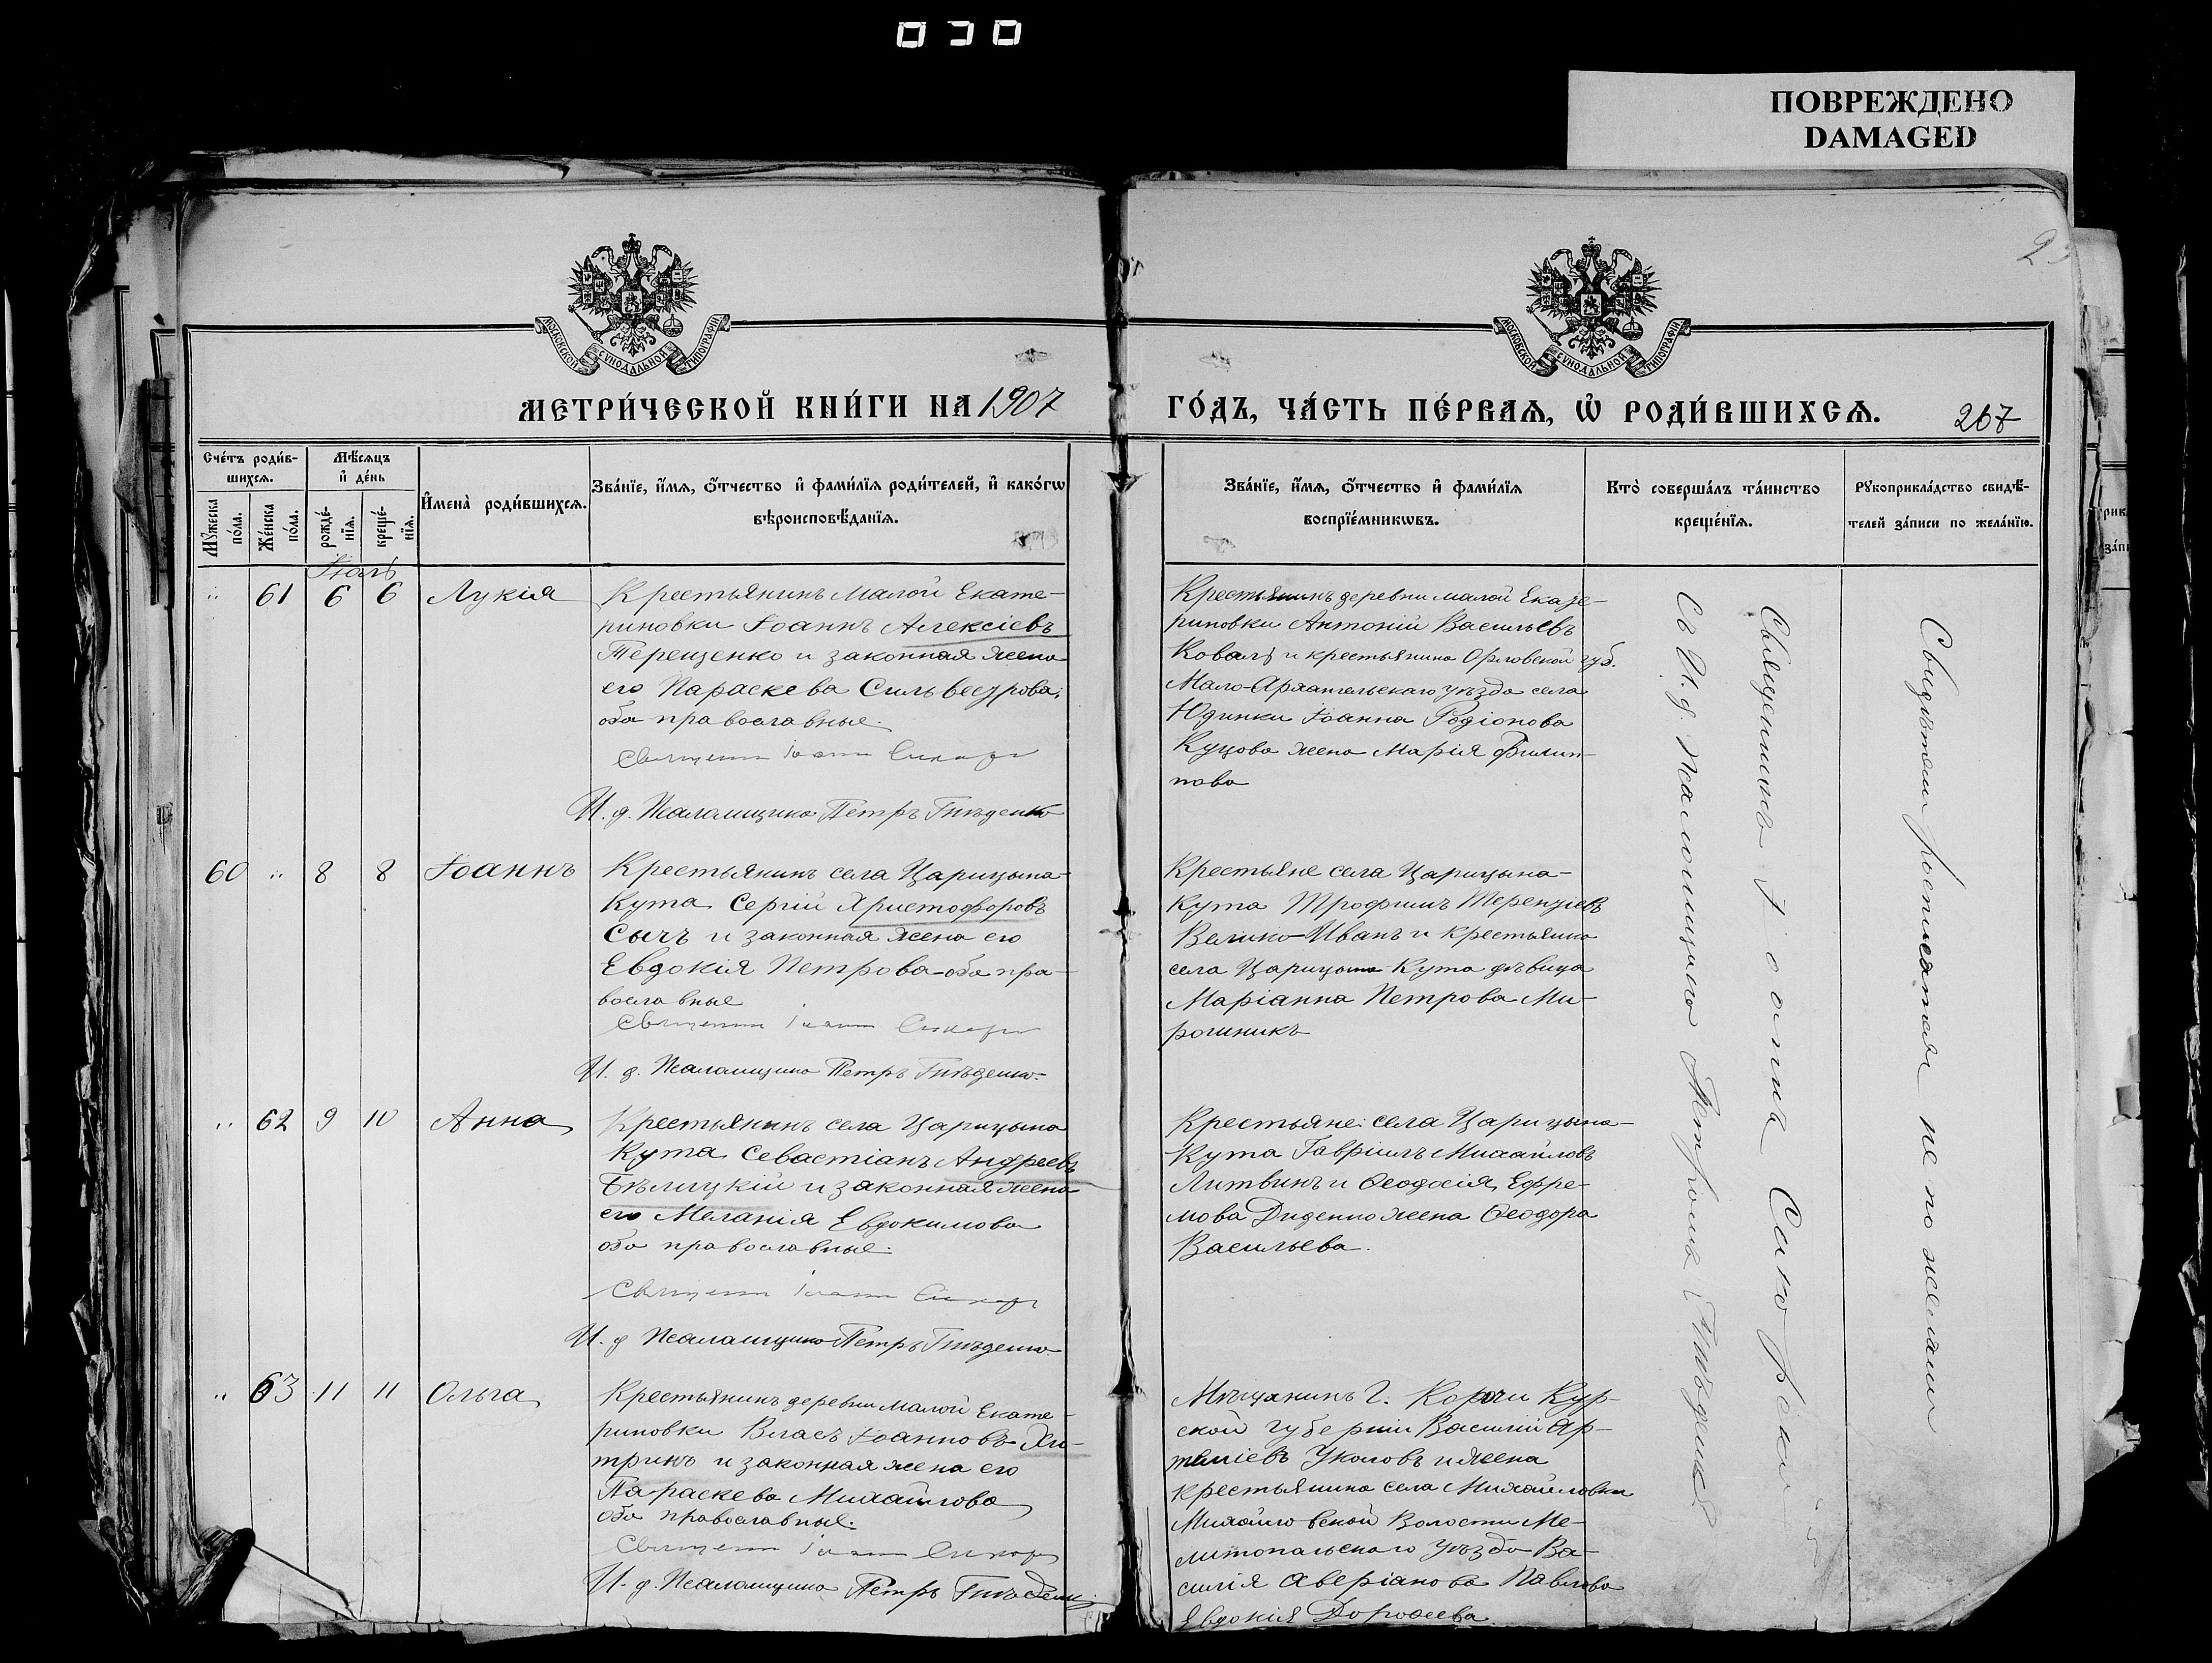 030
ПОВРЕЖДЕНО
DAMAGED
МОСКОВСКОЙ СѴНОДАЛЬНОЙ ТИПОГРАФІИ
МОСКОВСКОЙ СѴНОДАЛЬНОЙ ТИПОГРАФІИ
МЕТРИ́ЧЕСКОЙ КНИ́ГИ НА 1907
ГО́ДЪ, ЧА́СТЬ ПЕ́РВАѦ, Ѽ РОДИ́ВШИХСѦ.
267
Сче́тъ роди́в-
шихсѧ.
Мꙋжеска
по́ла.
Же́нска
по́ла.
Мѣ́сѧцъ
и҆ де́нь
рожде́-
нїѧ.
креще́-
нїѧ.
И҆мена̀ роди́вшихсѧ.
Зва́нїе, и҆́мѧ, ѻ҆́тчество и҆ фами́лїѧ роди́телей, и҆ како́гѡ
вѣроисповѣ́данїѧ.
Зва́нїе, и҆́мѧ, ѻ҆́тчество и҆ фами́лїѧ
воспрїе́мникѡвъ.
Кто̀ соверша́лъ та́инство
креще́нїѧ.
Рꙋкоприкла́дство свидѣ́-
телей за́писи по жела́нїю.
Іюль
61 6 6 Лукія
Крестьянинъ Малой Екате-
риновки Іоаннъ Алексіевъ
Терещенко и законная жена
его Параскева Сильвестрова,
оба православные.
Священн Іоанн Сикорс
И. д. Псаломщика Петръ Гнѣденко
Крестьянинъ деревни малой Екате-
риновки Антоній Васильевъ
Коваль и крестьянина Орловской губ.
Мало-Архангельскаго уѣзда села
Юдинки Іоанна Родіонова
Куцова жена Марія Филип-
пова
60 8 8 Іоаннъ
Крестьянинъ села Царицына-
Кута Сергій Христофоровъ
Сычъ и законная жена его
Евдокія Петрова - оба пра-
вославные
Священн Іоанн Сикорс
И. д. Псаломщика Петръ Гнѣденко.
Крестьяне села Царицына-
Кута Трофимъ Терентіевъ
Велико-Иванъ и крестьянка
села Царицына Кута дѣвица
Маріанна Петрова Ми-
рошникъ
62 9 10 Анна
Крестьянинъ села Царицына
Кута Севастіанъ Андреевъ
Бѣлицкій и законная жена
его Меланія Евдокимова
оба православные.
Священн Іоанн Сикорс
И. д Псаломщика Петръ Гнѣденко.
Крестьяне: села Царицына-
Кута Гавріилъ Михайловъ
Литвинъ и Ѳеодосія Ефре-
мова Диденко жена Ѳеодора
Васильева.
63 11 11 Ольга
Крестьянинъ деревни малой Екате-
риновки Власъ Іоанновъ Хи-
тринъ и законная жена его
Параскева Михайлова
оба православные.
Священн Іоанн Сикорс
И. д. Псаломщика Петръ Гнѣденко
Мѣщанинъ г. Корочи Кур-
ской губерніи Василій Ар-
темiевъ Уколовъ и жена
крестьянина села Михайловки
Михайловской Волости Ме-
литопольскаго уѣзда Ва-
силія Аверіанова Павлова
Евдокія Дороѳеева.
Священникъ Іоаннъ Сикорскій
Съ И. д. Псаломщика Петромъ Гнѣденко
Свидѣтели росписатся не пожелали